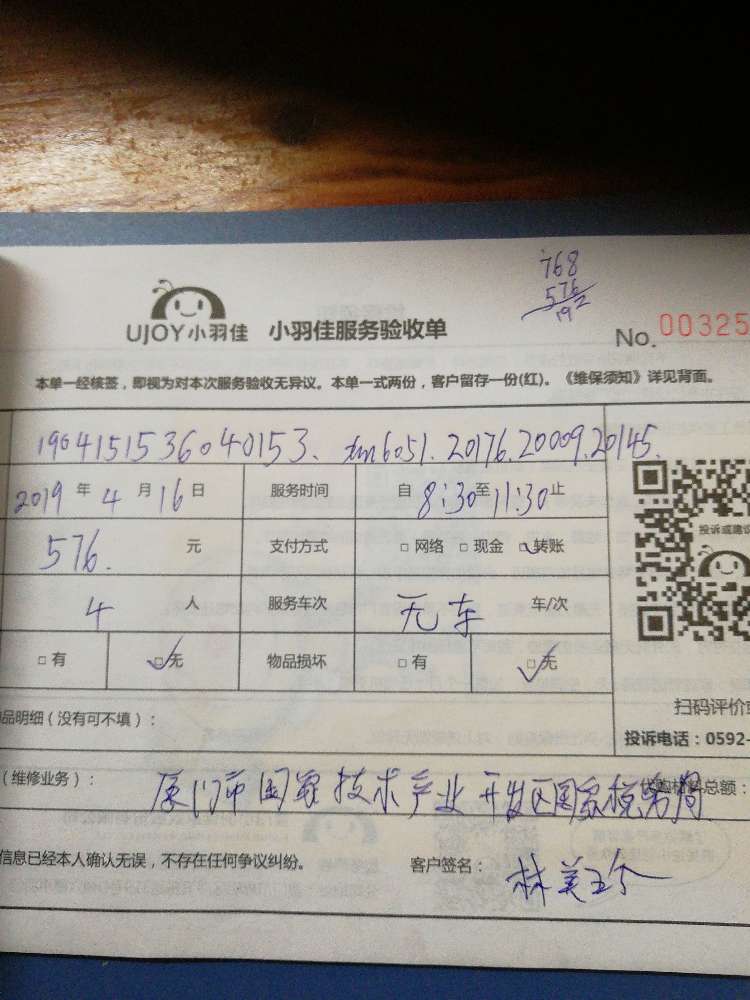 768
576
192
UJOY小羽佳 小羽佳服务验收单
No. 00325
本单一经核签，即视为对本次服务验收无异议。本单一式两份，客户留存一份(红)。《维保须知》详见背面。
1904151536040153. tm6051.20176.20009.20145.
2019 年 4 月 16 日 服务时间 自 8:30 至 11:30 止
576. 元 支付方式 □ 网络 □ 现金 □ 转账
投诉或建议
4 人 服务车次 无车 车/次
□ 有 □ 无 物品损坏 □ 有 □ 无
扫码评价
品明细（没有可不填）：
投诉电话：0592-
（维修业务）： 总额：
厦门市国家技术产业开发区国家税务局
信息已经本人确认无误，不存在任何争议纠纷。 客户签名： 林美玲